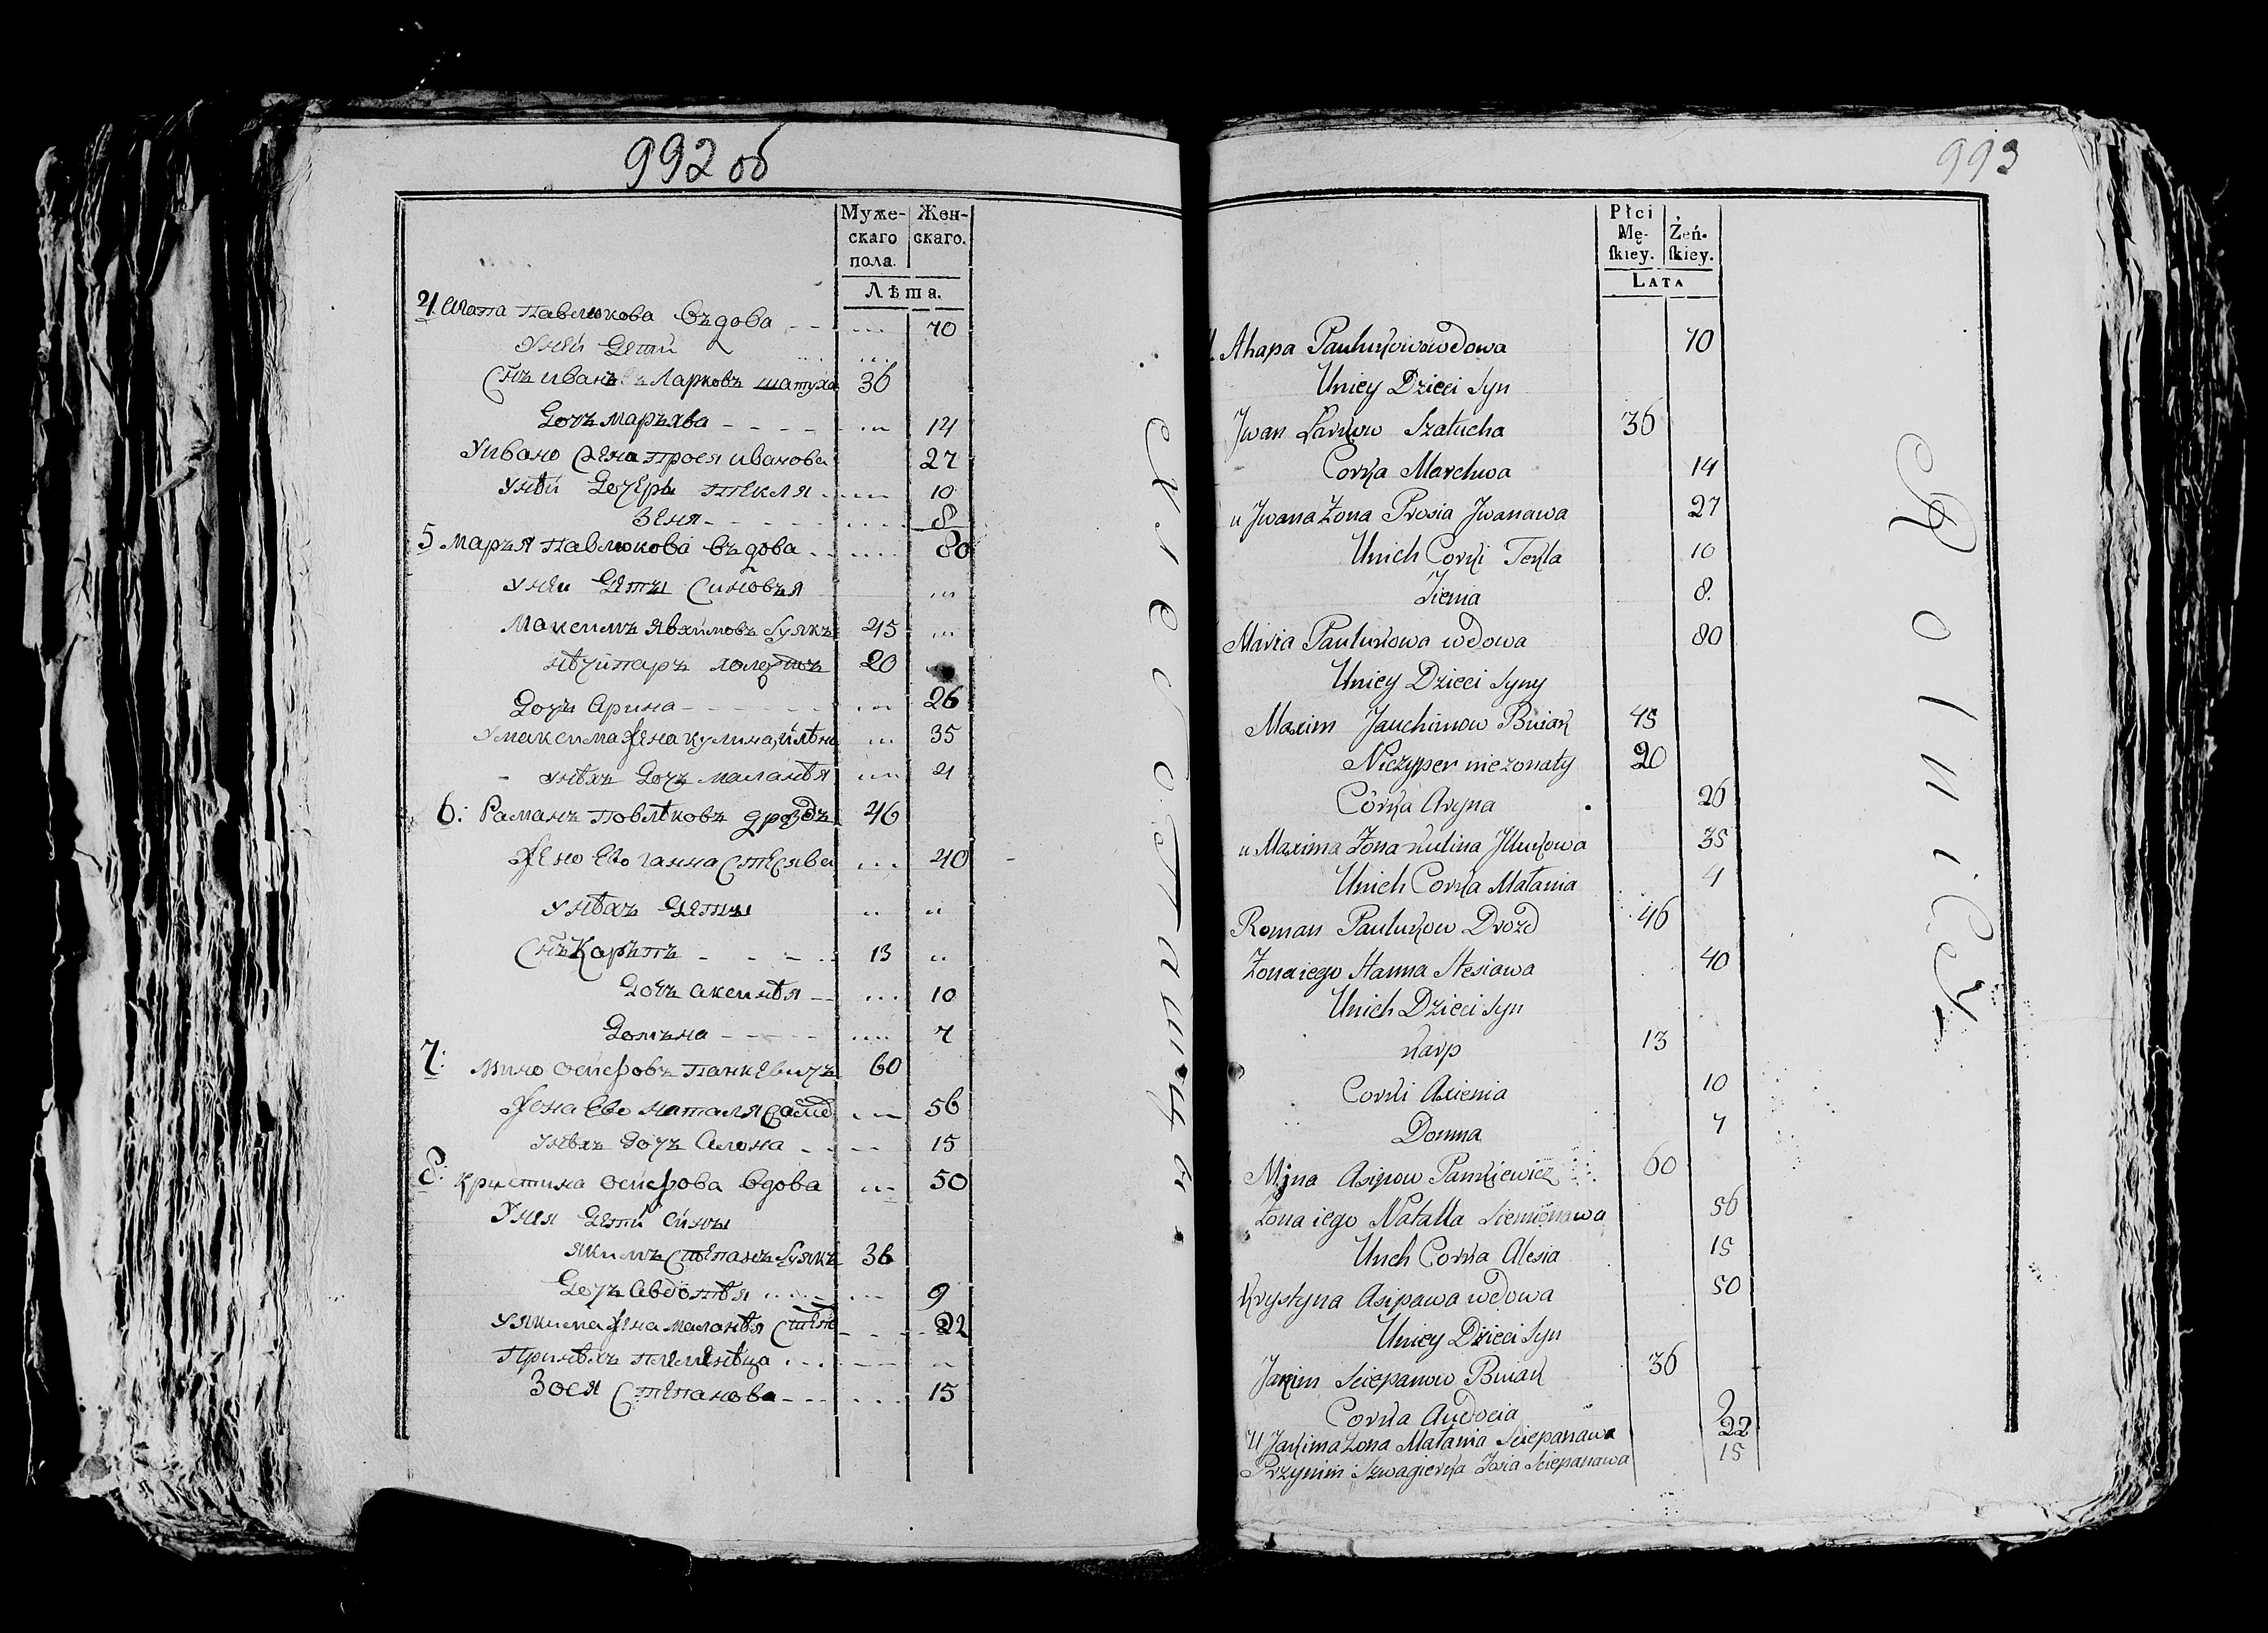 992 об
Муже-
скаго
пола.
Жен-
скаго.
Лѣта.
4 Агапа Павлюкова въдова 70
Уней Дети
Снъ Иванъ Ларковъ шатуха 36
Дочъ маръхва 14
Уивано Жена Прося иванова 27
Унѣи Дочерь Текля 10
Зеня 8
5 маръя Павлюкова въдова 80
Уней Детъ Синовъя
Максимъ явхимовъ буякъ 45
нѣчипаръ 20
Дочъ Арина 26
Умаксима Жена кулина 35
унѣхъ Дочъ маланѣя 4
6: Раманъ Повлѣковъ дроздъ 46
Жено Ево ганна Стесява 40
Унѣхъ Детъи
Снъ Каръпъ 13
Дочъ Аксинѣя 10
Домъна 7
7: Мино Осиповъ Панкевичъ 60
Жена Ево наталя 56
унѣхъ Дочъ Алона 15
8: Кристина Осипова вдова 50
Унея Дети Синъ
якимъ Степанъ буякъ 36
Дочъ Авдотѣя 9
Уякима Жена маланѣя 22
Принѣхъ племѣнѣца
Зося Степанова 15
Крестьянъ
993
Płci
Mę-
ſkiey.
Żeń-
ſkiey.
LATA
Ahapa Paulukowa wdowa 70
Uniey Dzieci Syn
Jwan Larkow Szatucha 36
Corka Marchwa 14
u Jwana Żona Prosia Jwanawa 27
Unich Corki Tekla 10
Zienia 8.
Maria Paulukowa wdowa 80
Uniey Dzieci Syny
Maxim Jauchimow Buiak 45
Niczyper niezonaty 20
Córka Aryna 26
u Maxima Żona Kulina Jllukowa 35
Unich Corka Małania 4
Roman Paulukow Drozd 46
Żona iego Hanna Stesiawa 40
Unich Dzieci Syn
Karp 13
Corki Axienia 10
Domna 7
Mina Asipow Pankiewicz 60
Żona iego Natalla Siemionawa 56
Unich Corka Alesia 15
Krystyna Asipawa wdowa 50
Uniey Dzieci Syn
Jakim Sciepanow Buiak 36
Corka Audocia 9
U Jakima Żona Małania Sciepanawa 22
Przynim Szwagierka Zosia Sciepanawa 15
Rolnicy